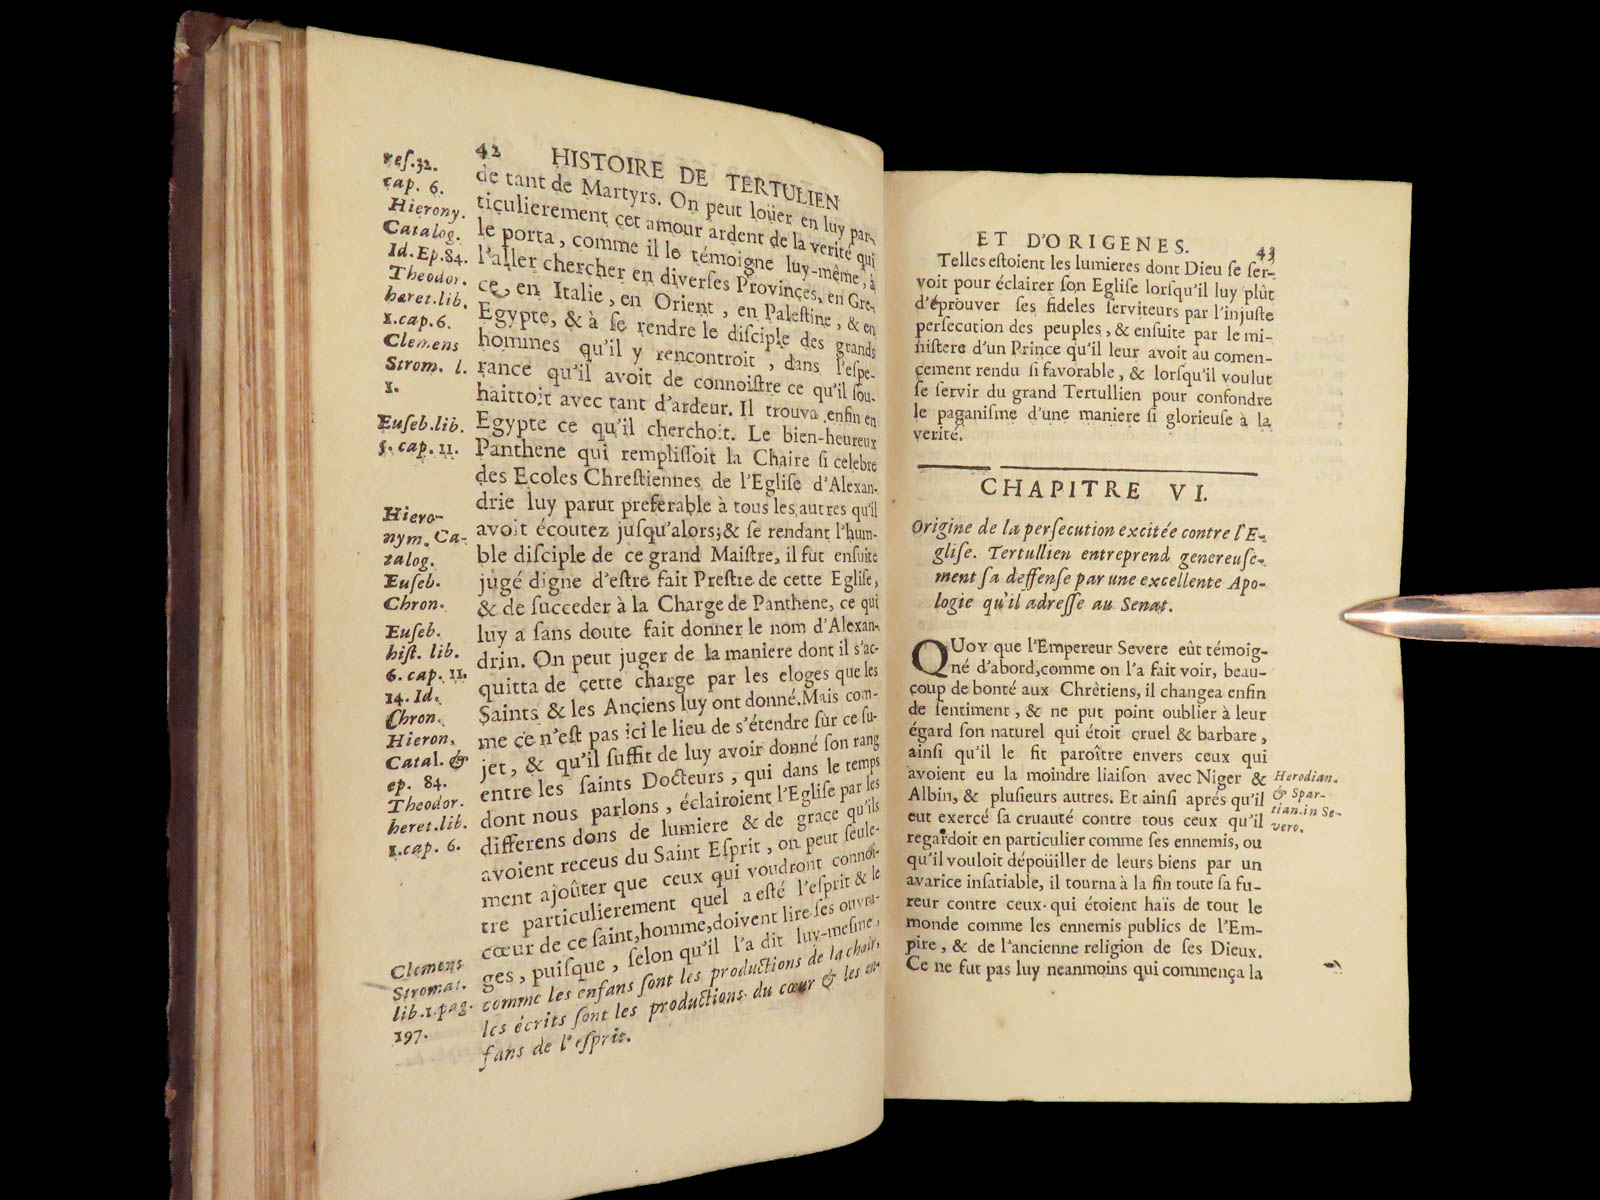 42 HISTOIRE DE TERTULIEN
de tant de Martyrs. On peut loüer en luy par-
ticulierement cet amour ardent de la verité qui
le porta, comme il le témoigne luy-même, à
l'aller chercher en diverſes Provinces, en Gre-
ce, en Italie, en Orient, en Paleſtine, & en
Egypte, & à ſe rendre le diſciple des grands
hommes qu'il y rencontroit, dans l'eſpe-
rance qu'il avoit de connoiſtre ce qu'il ſou-
haittoit avec tant d'ardeur. Il trouva enfin en
Egypte ce qu'il cherchoit. Le bien-heureux
Panthene qui rempliſſoit la Chaire ſi celebre
des Ecoles Chreſtiennes de l'Egliſe d'Alexan-
drie luy parut preferable à tous les autres qu'il
avoit écoutez juſqu'alors; & ſe rendant l'hum-
ble diſciple de ce grand Maiſtre, il fut enſuite
jugé digne d'eſtre fait Preſtre de cette Egliſe,
& de ſucceder à la Charge de Panthene, ce qui
luy a ſans doute fait donner le nom d'Alexan-
drin. On peut juger de la maniere dont il s'ac-
quitta de cette charge par les eloges que les
Saints & les Anciens luy ont donné. Mais com-
me ce n'eſt pas ici le lieu de s'étendre ſur ce ſu-
jet, & qu'il ſuffit de luy avoir donné ſon rang
entre les ſaints Docteurs, qui dans le temps
dont nous parlons, éclairoient l'Egliſe par les
differens dons de lumiere & de grace qu'ils
avoient receus du Saint Eſprit, on peut ſeule-
ment ajoûter que ceux qui voudront connoî-
tre particulierement quel a eſté l'eſprit & le
cœur de ce ſaint, homme, doivent lire ſes ouvra-
ges, puiſque, ſelon qu'il l'a dit luy-meſme,
comme les enfans ſont les productions de la chair,
les écrits ſont les productions du cœur & les en-
fans de l'eſprit.
reſ. 32.
cap. 6.
Hierony.
Catalog.
Id. Ep. 84.
Theodor.
heret. lib.
1. cap. 6.
Clemens
Strom. l.
1.
Euſeb. lib.
5. cap. 11.
Hiero-
nym. Ca-
talog.
Euſeb.
Chron.
Euſeb.
hiſt. lib.
6. cap. 11.
14. Id.
Chron.
Hieron.
Catal. &
ep. 84.
Theodor.
heret. lib.
1. cap. 6.
Clemens
Stromat.
lib. 1. pag.
197.
ET D'ORIGENES. 43
Telles eſtoient les lumieres dont Dieu ſe ſer-
voit pour éclairer ſon Egliſe lorſqu'il luy plût
d'éprouver ſes fideles ſerviteurs par l'injuſte
perſecution des peuples, & enſuite par le mi-
niſtere d'un Prince qu'il leur avoit au comen-
çement rendu ſi favorable, & lorſqu'il voulut
ſe ſervir du grand Tertullien pour confondre
le paganiſme d'une maniere ſi glorieuſe à la
verité.
CHAPITRE VI.
Origine de la perſecution excitée contre l'E-
gliſe. Tertullien entreprend genereuſe-
ment ſa deffenſe par une excellente Apo-
logie qu'il adreſſe au Senat.
QUoy que l'Empereur Severe eût témoig-
né d'abord, comme on l'a fait voir, beau-
çoup de bonté aux Chrètiens, il changea enfin
de ſentiment, & ne put point oublier à leur
égard ſon naturel qui étoit cruel & barbare,
ainſi qu'il le fit paroître envers ceux qui
avoient eu la moindre liaiſon avec Niger &
Albin, & pluſieurs autres. Et ainſi aprés qu'il
eut exercé ſa cruauté contre tous ceux qu'il
regardoit en particulier comme ſes ennemis, ou
qu'il vouloit dépoüiller de leurs biens par un
avarice inſatiable, il tourna à la fin toute ſa fu-
reur contre ceux qui étoient haïs de tout le
monde comme les ennemis publics de l'Em-
pire, & de l'ancienne religion de ſes Dieux.
Ce ne fut pas luy neanmoins qui commença la
Herodian.
& Spar-
tian. in Se-
vero.